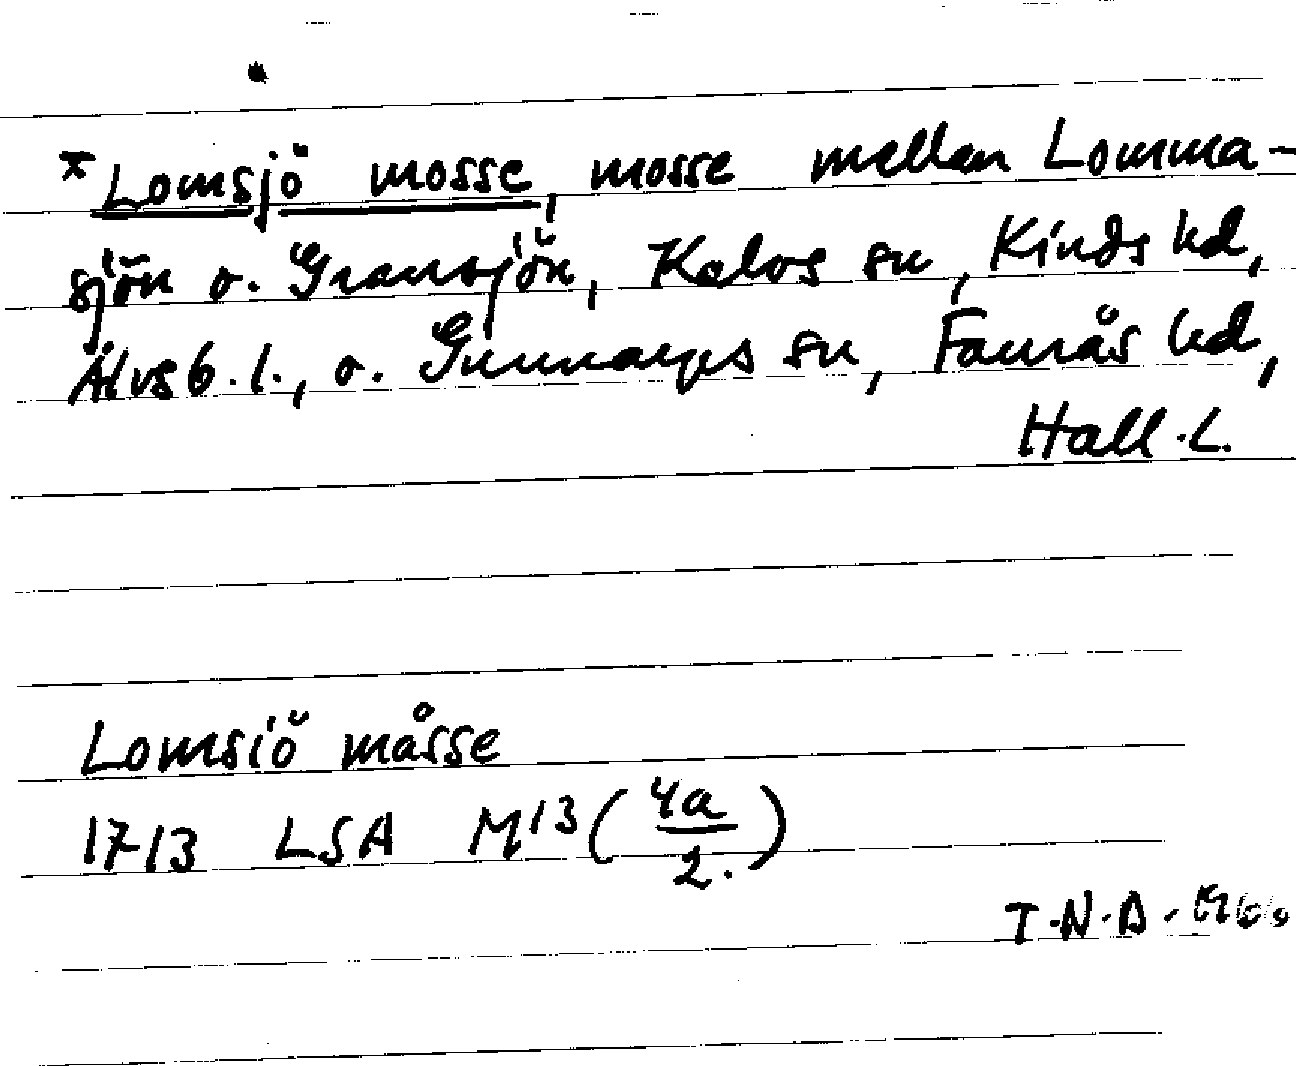 * Lomsjö mosse, mosse mellan Lomma-
sjön o. Gransjön, Kalvs sn, Kinds hd,
Älvsb. l., o. Gunnarps sn, Faurås hd,
Hall. L.
Lomsiö måsse
1713 LSA M13 (4a/2.)
T.N.D.